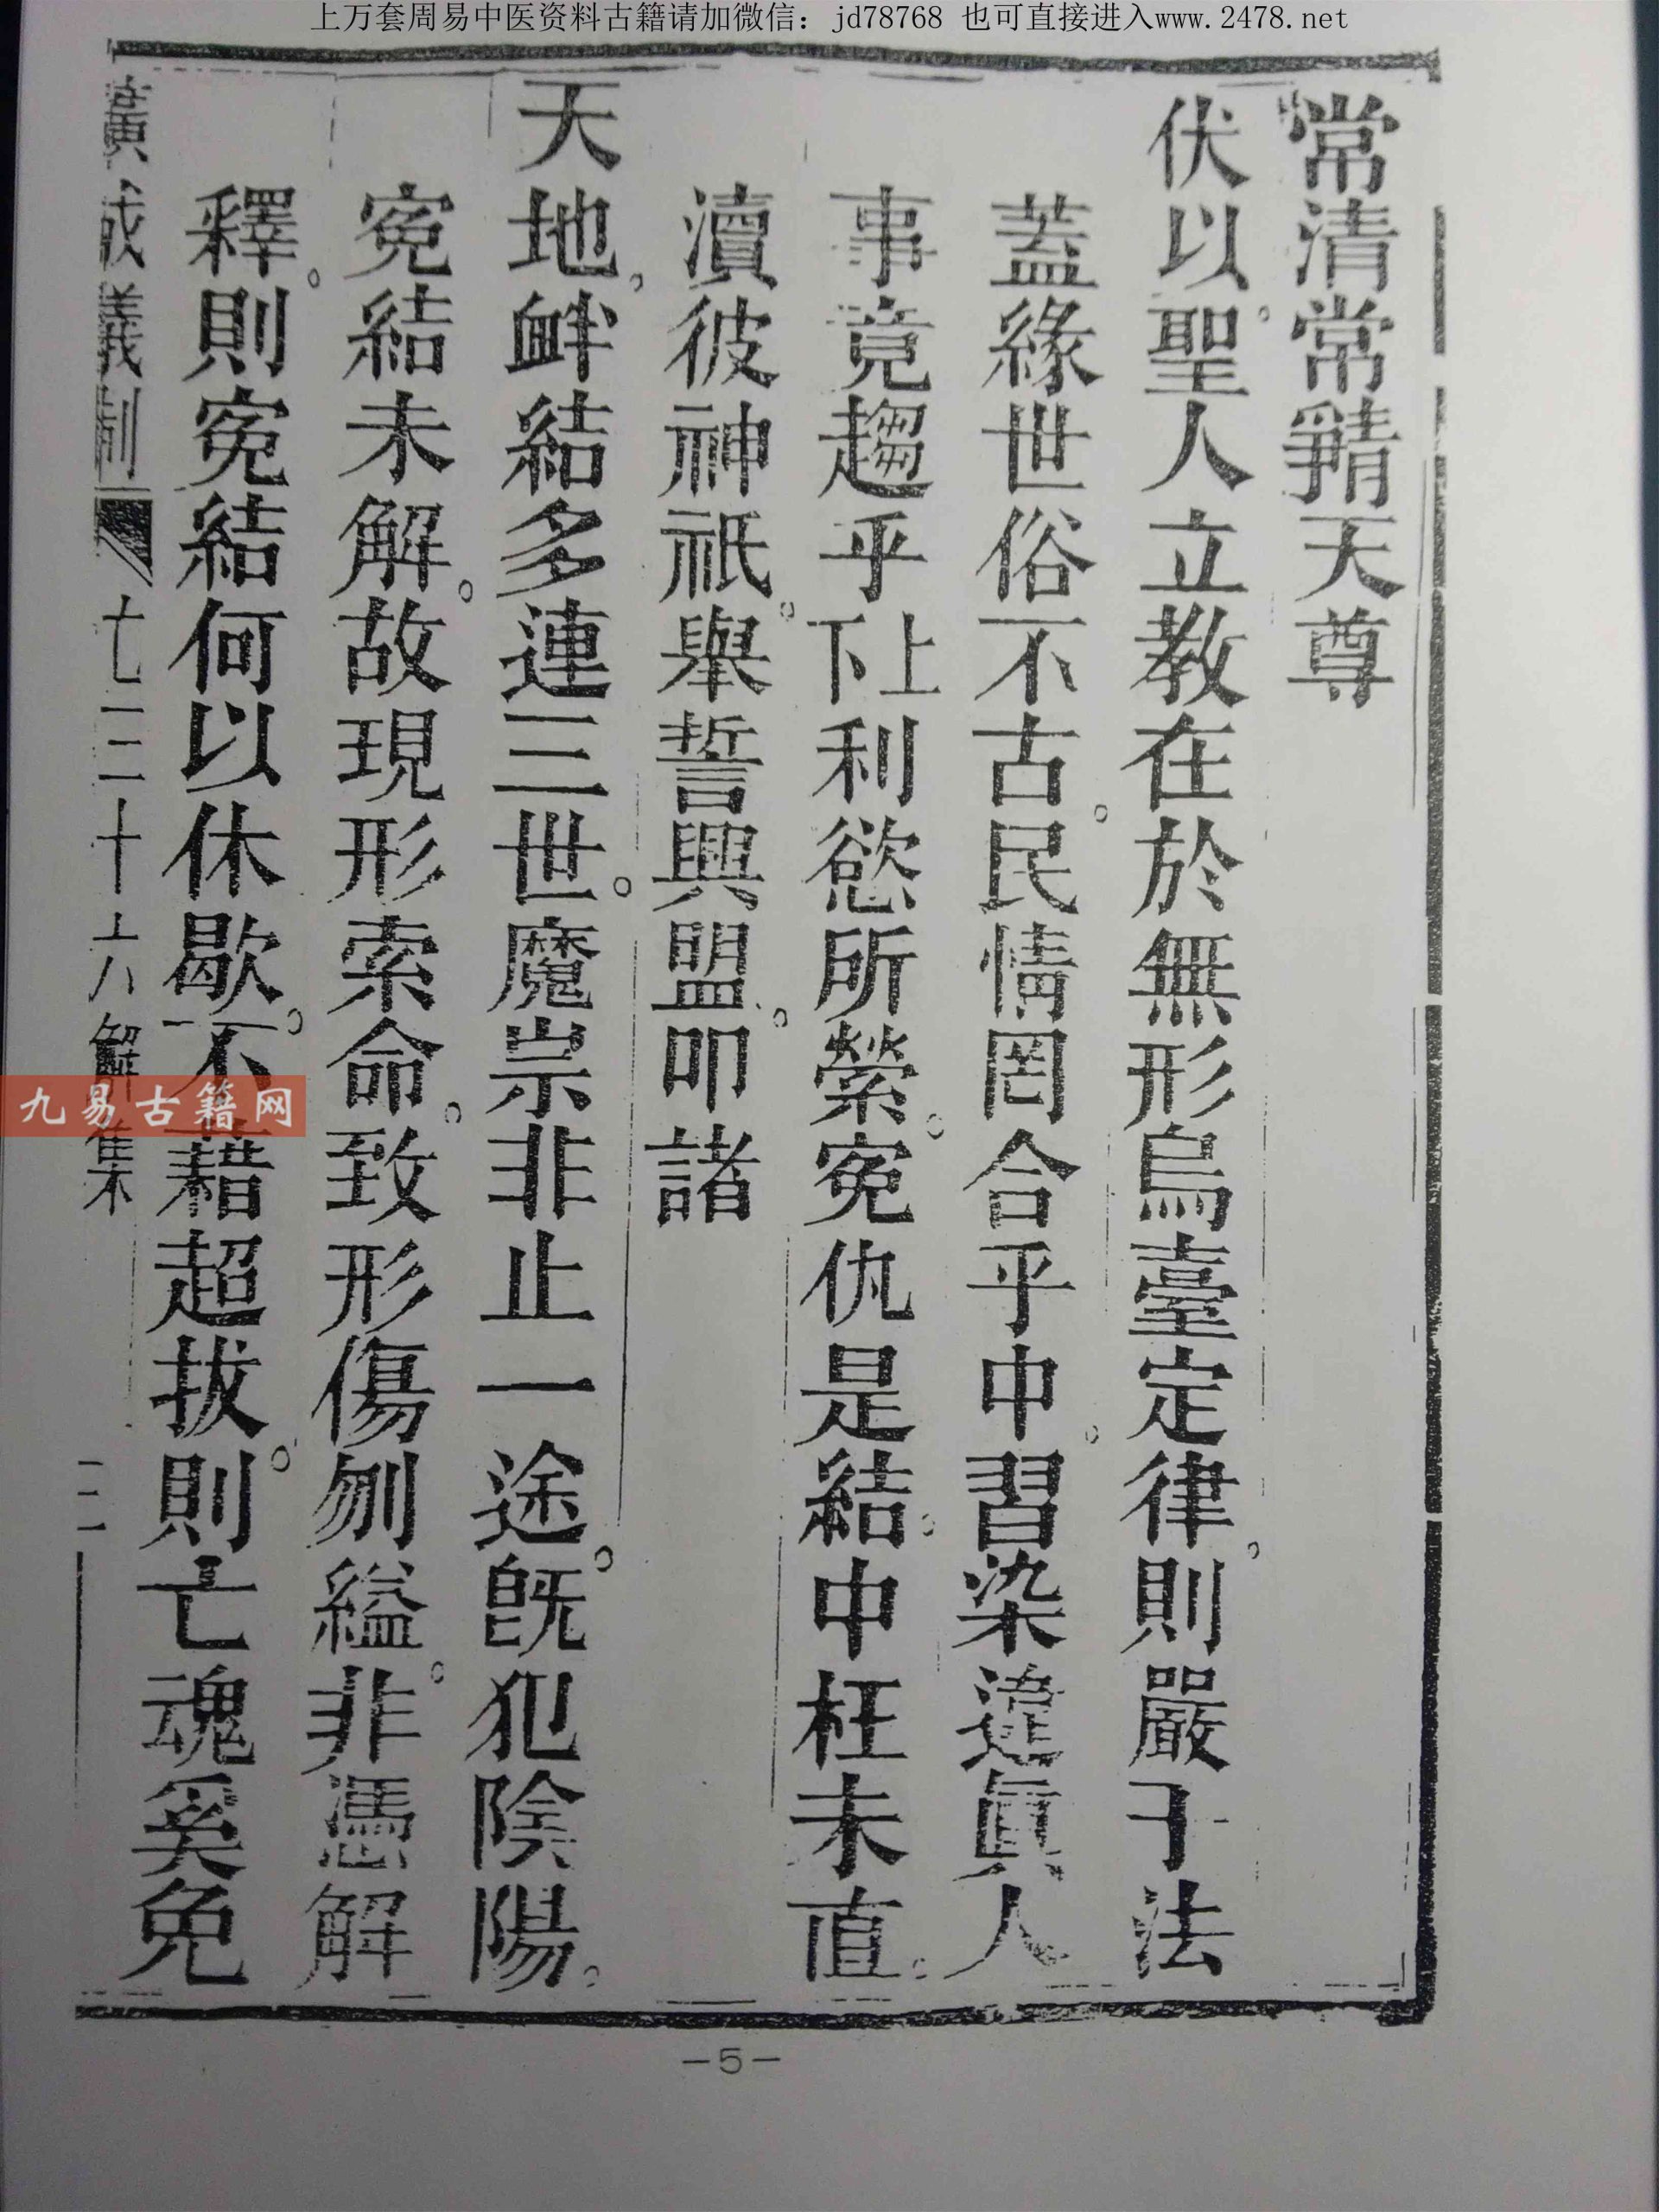 上万套周易中医资料古籍请加微信：jd78768 也可直接进入www.2478.net
常清常靜天尊
伏以。聖人立教在於無形烏臺定律。則嚴于法
蓋緣世俗不古。民情罔合乎中。習染違眞人
事竟趨乎下上利慾所縈。寃仇是結。中枉未直。
瀆彼神祇。舉誓興盟。叩諸
天地。衅結多連三世。魔祟非止一途。既犯陰陽。
寃結未解。故現形索命。致形傷刎縊。非憑解
釋。則寃結何以休歇。不藉超拔。則亡魂奚免
廣成儀制 七二二十六解集 二
九易古籍网
-5-